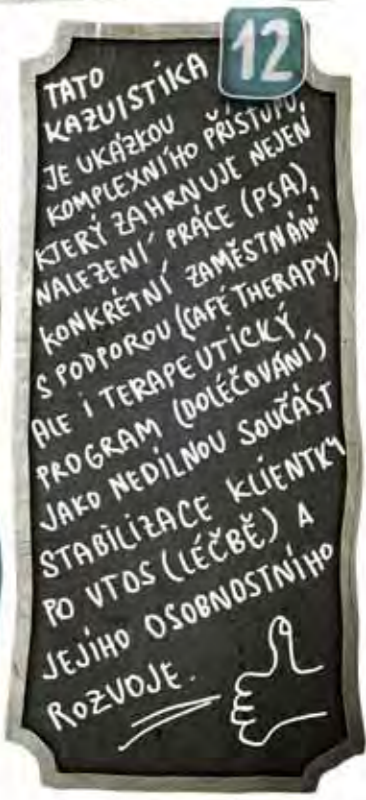 12
TATO
KAZUISTIKA
JE UKÁZKOU
KOMPLEXNÍHO PŘÍSTUPU,
KTERÝ ZAHRNUJE NEJEN
NALEZENÍ PRÁCE (PSA),
KONKRÉTNÍ ZAMĚSTNÁNÍ
S PODPOROU (CAFÉ THERAPY)
ALE I TERAPEUTICKÝ
PROGRAM (DOLÉČOVÁNÍ)
JAKO NEDÍLNOU SOUČÁST
STABILIZACE KLIENTKY
PO VTOS (LÉČBĚ) A
JEJÍHO OSOBNOSTNÍHO
ROZVOJE.